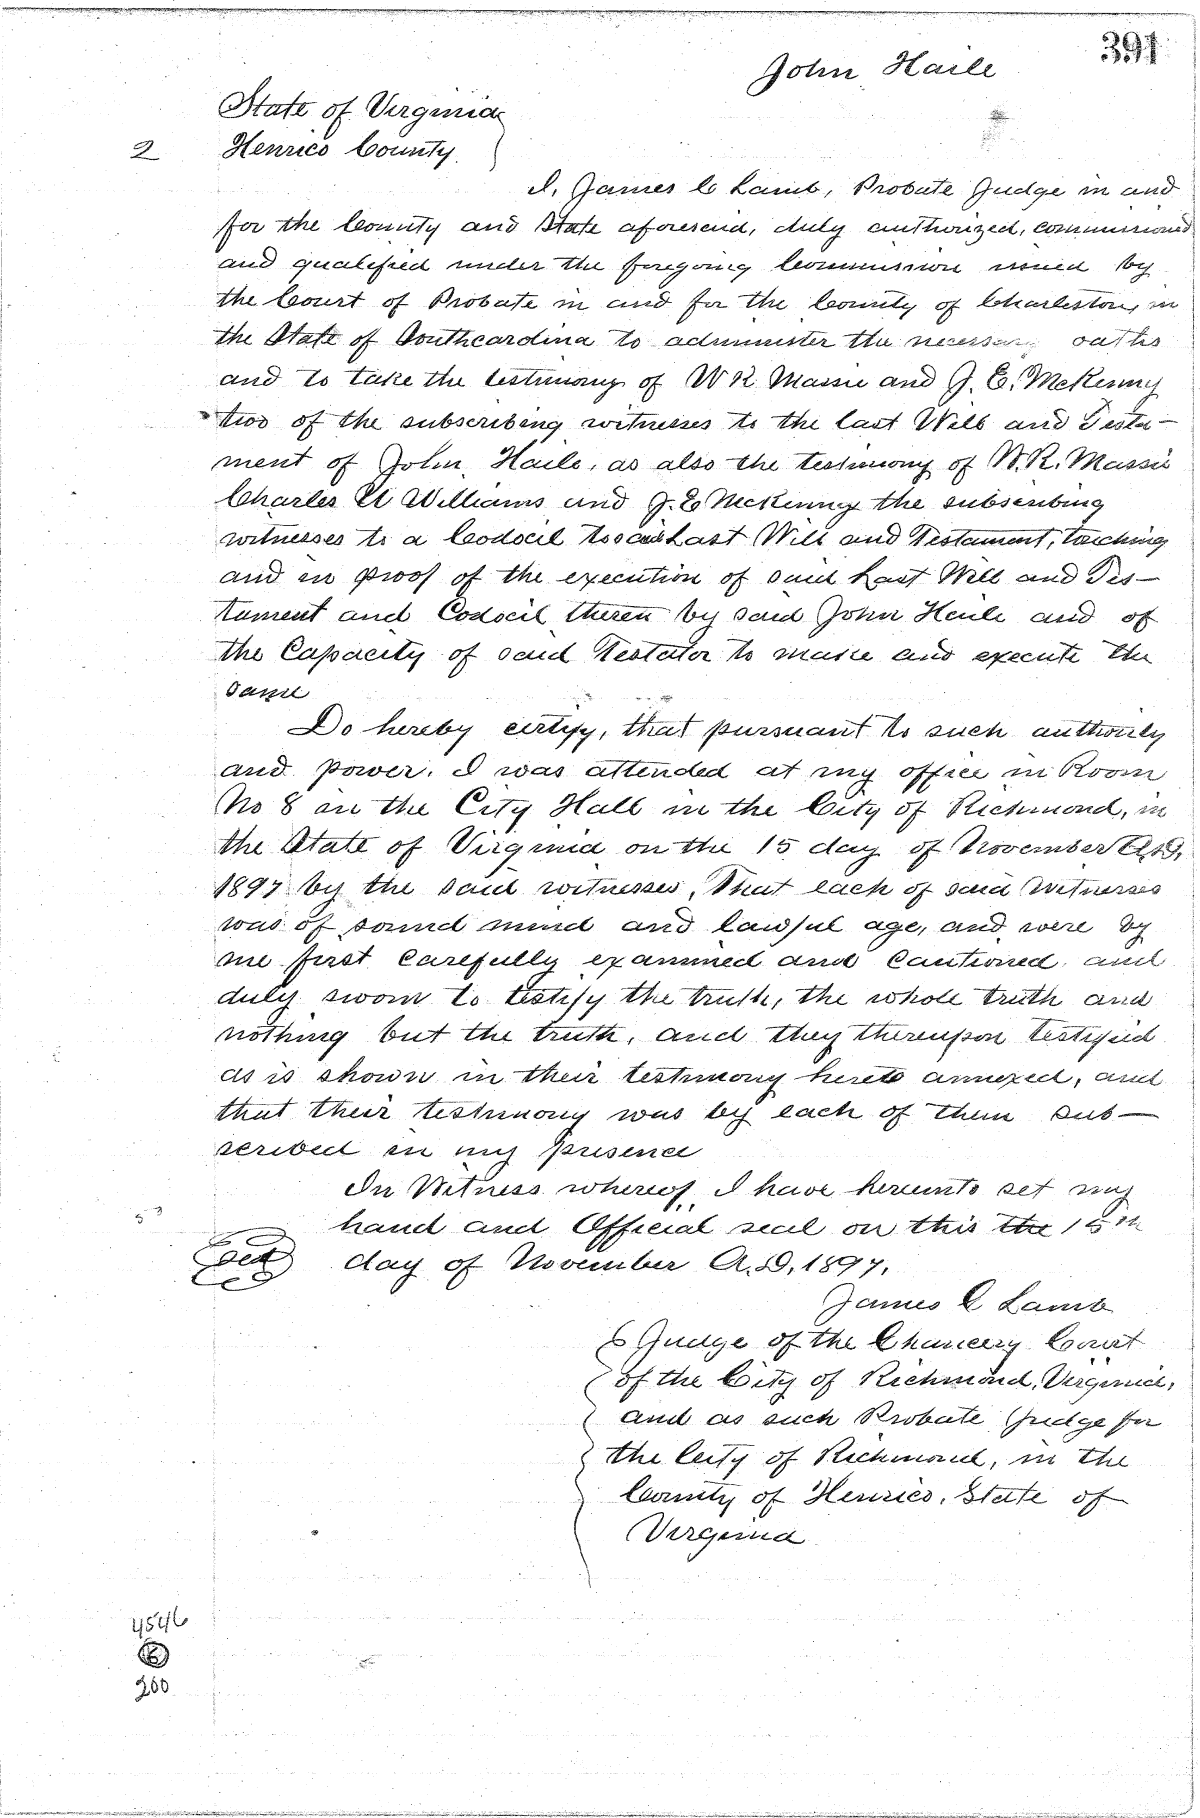 391
John Haile
State of Virginia
2 Henrico County
I, James C Lamb, Probate Judge in and
for the County and State aforesaid, duly authorized, commissioned
and qualified under the foregoing Commission issued by
the Court of Probate in and for the County of Charleston, in
the State of Southcarolina to administer the necessary oaths
and to take the testimony of W R Massie and J. E. McKenny
two of the subscribing witnesses to the last Will and Testa-
ment of John Haile, as also the testimony of W. R. Massie
Charles U Williams and J. E McKenny the subscribing
witnesses to a Codocil to said Last Will and Testament, touching
and in proof of the execution of said Last Will and Tes-
tament and Codocil thereu by said John Haile and of
the Capacity of said Testator to make and execute the
same
Do hereby certify, that pursuant to such authority
and power, I was attended at my office in Room
No 8 in the City Hall in the City of Richmond, in
the State of Virginia on the 15 day of November A.D,
1897 by the said witnesses, That each of said Witnesses
was of sound mind and lawful age, and were by
me first carefully examined and Cautioned and
duly sworn to testify the truth, the whole truth and
nothing but the truth, and they thereupon testified
as is shown in their testimony hereto annexed, and
that their testimony was by each of them sub-
scribed in my presence
In Witness whereof, I have hereunto set my
hand and Official seal on this the 15th
Seal day of November A.D, 1897.
James C Lamb
Judge of the Chancery Court
of the City of Richmond, Virginia,
and as such Probate Judge for
the City of Richmond, in the
County of Henrico, State of
Virginia
4546
200